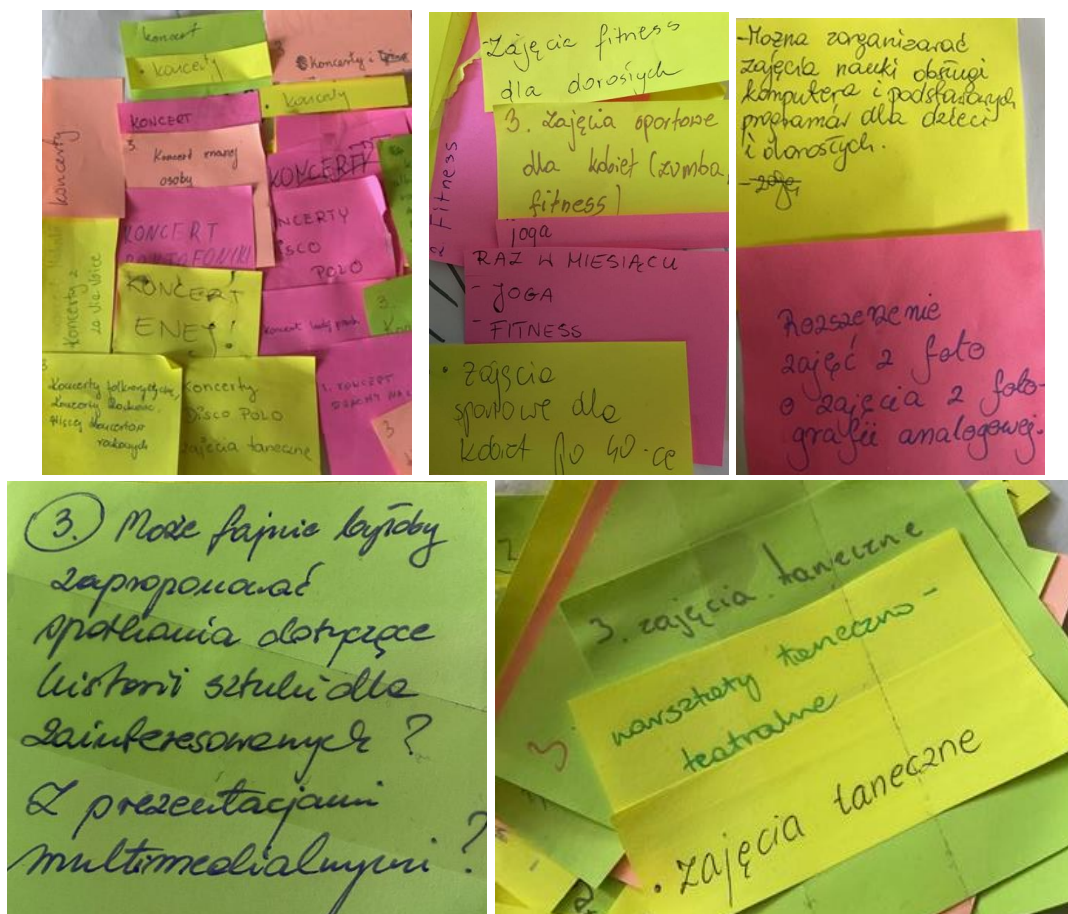 koncert
• koncerty
Koncerty i
koncerty
• koncerty
KONCERT
3.
Koncert znanej
osoby
KONCERTY
KONCERT
NCERTY
ISCO
POLO
Koncerty z
za Vie Voice
KONCERT
ENEJ!
3.
Koncerty folklorystyczne,
koncerty
więcej koncertów
rockowych
Koncerty
DISCO POLO
zajęcia taneczne
1. KONCERT
3
-Zajęcia fitness
dla dorosłych
3. Zajęcia sportowe
dla kobiet (zumba,
fitness)
Fitness
joga
RAZ W MIESIĄCU
- JOGA
- FITNESS
• zajęcia
sportowe dla
kobiet po 40-ce
-Można zorganizować
zajęcia nauki obsługi
komputera i podstawowych
programów dla dzieci
i dorosłych.
Rozszerzenie
zajęć z foto
o zajęcia z foto-
grafii analogowej.
3. Może fajnie byłoby
zaproponować
spotkania dotyczące
historii sztuki dla
zainteresowanych?
Z prezentacjami
multimedialnymi?
3. zajęcia taneczne
3.
warsztaty taneczno-
teatralne
• zajęcia taneczne